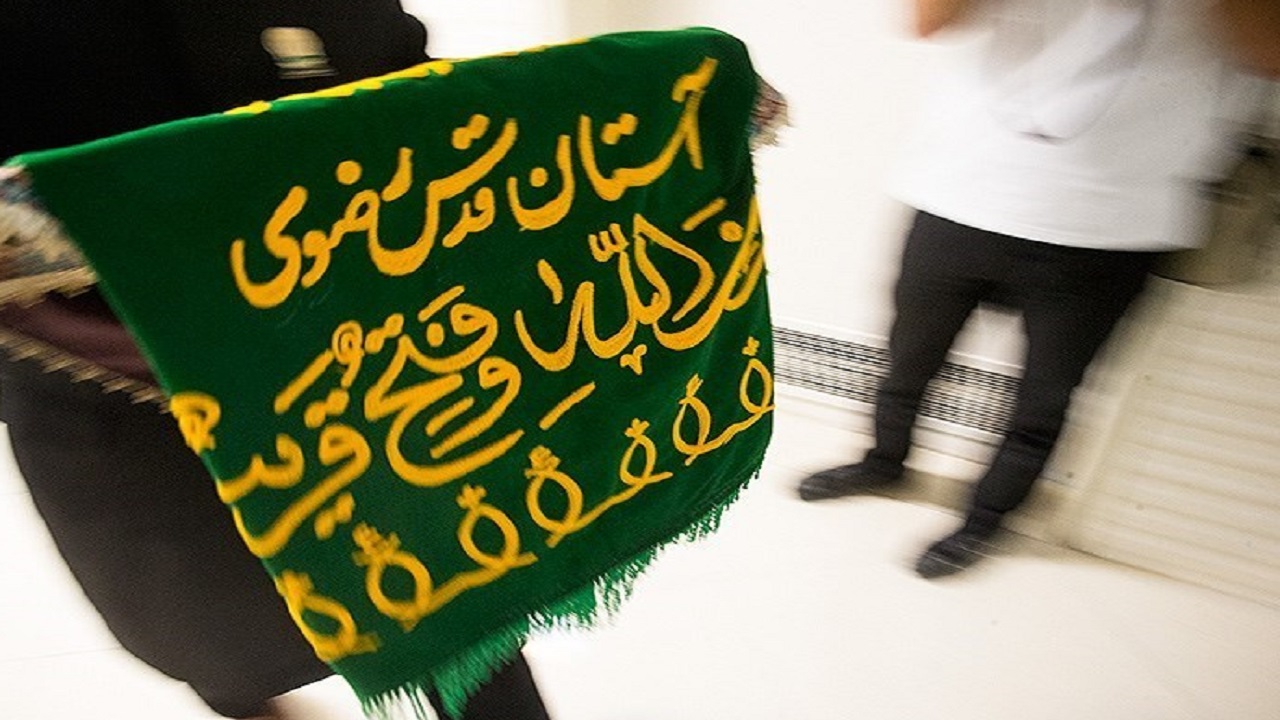 آستان قدس رضوی
من اللّه وفتح قریب